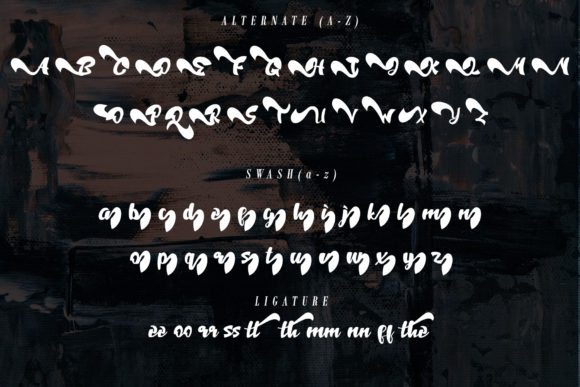 ALTERNATE (A-Z)
A B C D E F G H I J K L M N
O P Q R S T U V W X Y Z
SWASH(a-z)
a b c d e f g h i j k l m n
o p q r s t u v w x y z
LIGATURE
ee oo rr ss tt th mm nn ff the